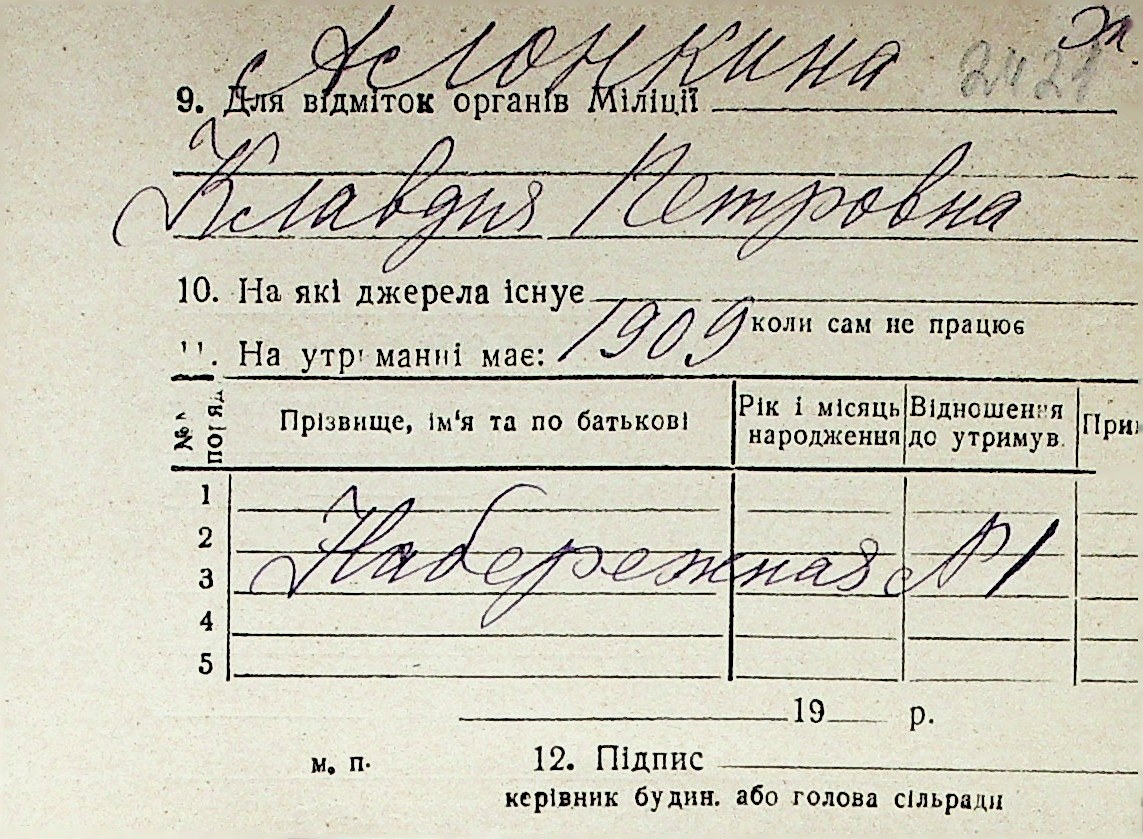 Аслонкина
2421
9. Для відміток органів Міліції
Клавдия Петровна
10. На які джерела існує
коли сам не працює
1909
11. На утриманні має:
№№ поряд. Прізвище, ім'я та по батькові Рік і місяць народження Відношення до утримув. При
1
2
Набережная №1
3
4
5
19 р.
м. п. 12. Підпис
керівник будин. або голова сільради